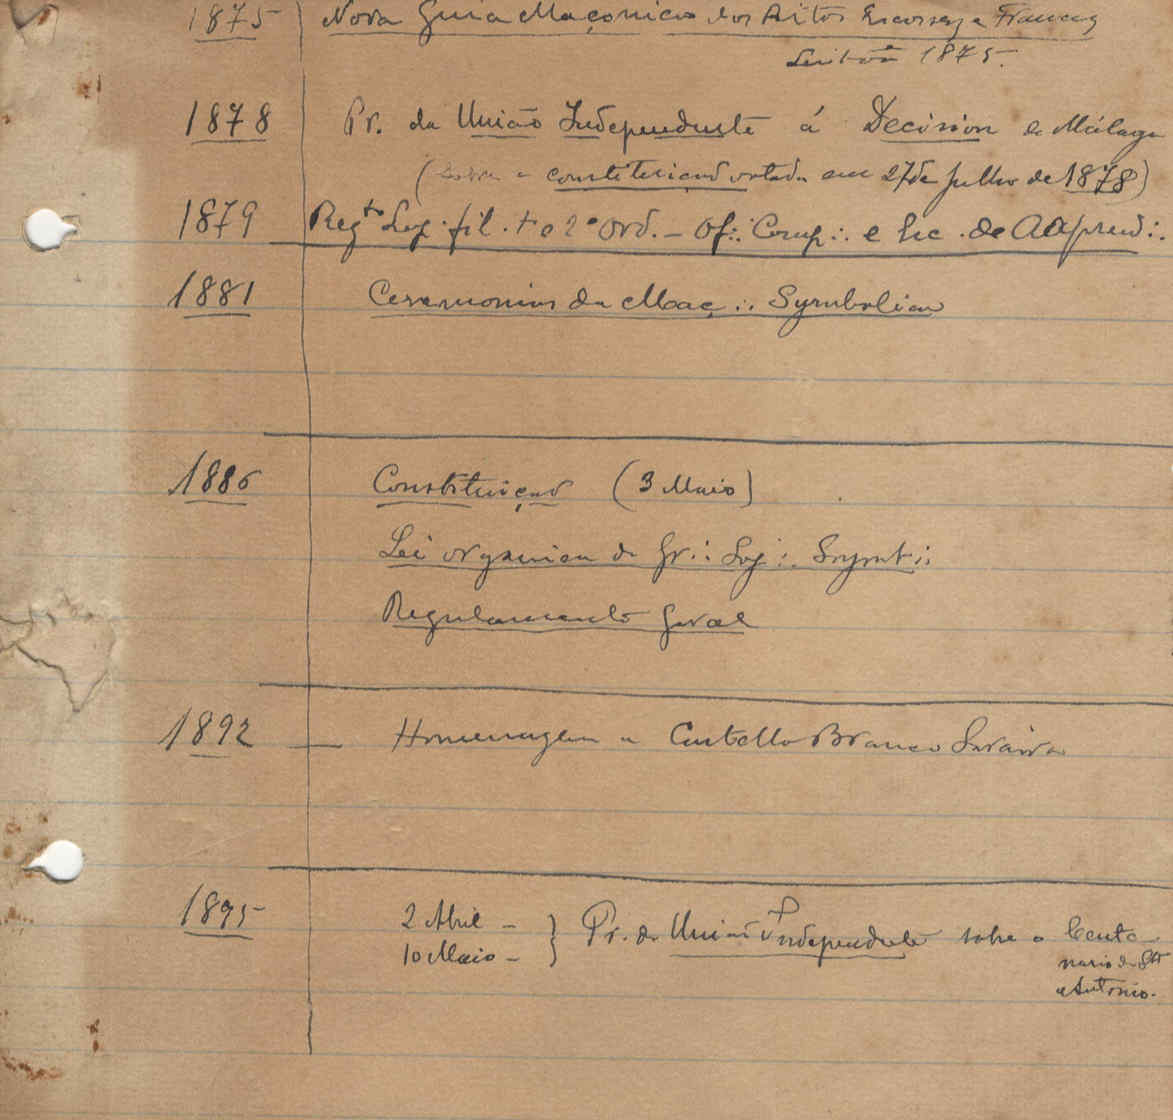 1875 Nova Guia Maçonico dos Ritos Escossez e Francez
Lisboa 1875.
1878 Pr. da União Independente á Decision de Málaga
(sobre a constituiçao votada em 27 de Julho de 1878)
1879 Reg.to Loj. fil. 2º Ord. - Of∴ Comp∴ e Lic. de Aprend∴
1881 Ceremonias da Maç∴ Symbolica
1886 Constituiçao (3 Maio)
Lei organica da Gr∴ Loj∴ Symb∴
Regulamento Geral
1892 — Homenagem a Castello Branco Saraiva
1895 2 Abril - } Pr. da União Independente sobre o Cente-
10 Maio - nario de Sto
Antonio.